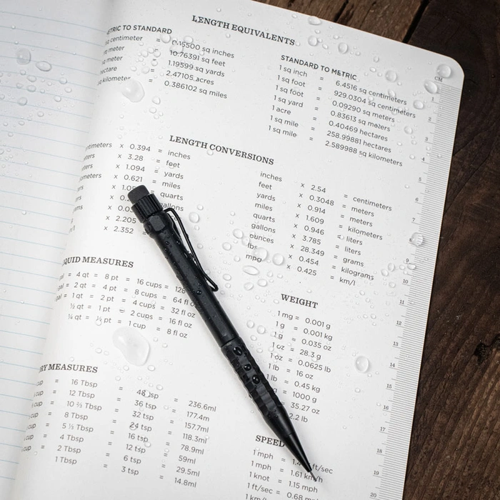 LENGTH EQUIVALENTS
METRIC TO STANDARD
= 0.15500 sq inches
meter = 10.76391 sq feet
meter = 1.19599 sq yards
= 2.47105 acres
kilometer = 0.386102 sq miles
STANDARD TO METRIC
1 sq inch = 6.4516 sq centimeters
1 sq foot = 929.0304 sq centimeters
1 sq foot = 0.09290 sq meters
1 sq yard = 0.83613 sq meters
1 acre = 0.40469 hectares
1 sq mile = 258.99881 hectares
1 sq mile = 2.589988 sq kilometers
LENGTH CONVERSIONS
x 0.394 = inches
x 3.28 = feet
x 1.094 = yards
x 0.621 = miles
quarts
gallons
x 2.205
x 2.352
inches x 2.54 = centimeters
feet x 0.3048 = meters
yards x 0.914 = meters
miles x 1.609 = kilometers
quarts x 0.946 = liters
gallons x 3.785 = liters
ounces x 28.349 = grams
x 0.454 = kilograms
mpg x 0.425 = km/l
LIQUID MEASURES
= 4 qt = 8 pt = 16 cups =
= 2 qt = 4 pt = 8 cups = 64 fl oz
= 2 pt = 4 cups = 32 fl oz
½ qt = 1 pt = 2 cups = 16 fl oz
¼ qt = 1 cup = 8 fl oz
WEIGHT
1 mg = 0.001 g
1 g = 0.001 kg
1 g = 0.035 oz
1 oz = 28.3 g
1 oz = 0.0625 lb
= 16 oz
= 0.45 kg
1000 g
35.27 oz
2.2 lb
DRY MEASURES
= 16 Tbsp = 48 tsp = 236.6ml
= 12 Tbsp = 36 tsp = 177.4m
= 10 ⅔ Tbsp = 32 tsp = 157.7ml
= 8 Tbsp = 24 tsp = 118.3ml
= 5 ⅓ Tbsp = 16 tsp = 78.9ml
= 4 Tbsp = 12 tsp = 59ml
= 2 Tbsp = 6 tsp = 29.5ml
= 1 Tbsp = 3 tsp = 14.8ml
SPEED
1 mph = ft/sec
1 mph = 1.61 km/
1 knot = 1.15 mph
1 ft/sec = 0.68 m